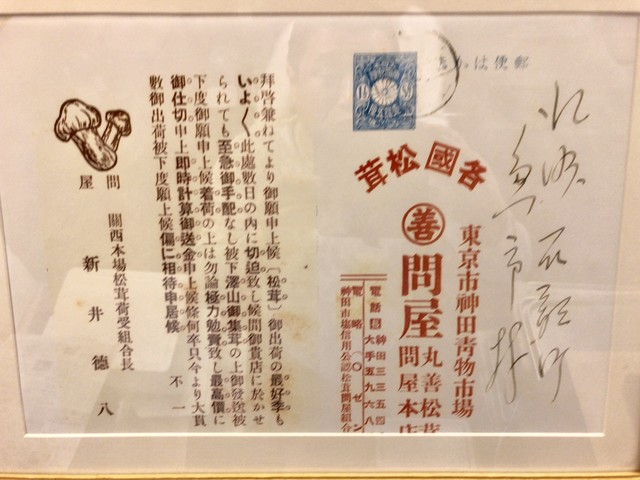 郵便はがき
各國松茸
東京市神田青物市場
善
問屋
丸善松茸
問屋本店
電話
神田三三五四
大手五九六八
電略(〇ゼン)
神田市塲信用公認松茸問屋組合
拜啓兼ねてより御願申上候〔松茸〕御出荷の最好季も
いよ〱此處數日の内に切迫致し候間御貴店に於かせ
られても至急御手配なし被下澤山御集茸の上御發送被
下度御願申上候着荷の上は勿論極力勉賣致し最高價に
御仕切申上即時計算御送金申上候條何卒只今より大貫
數御出荷被下度願上候偏に相待申居候
不一
關西本塲松茸荷受組合長
問屋
新井德八